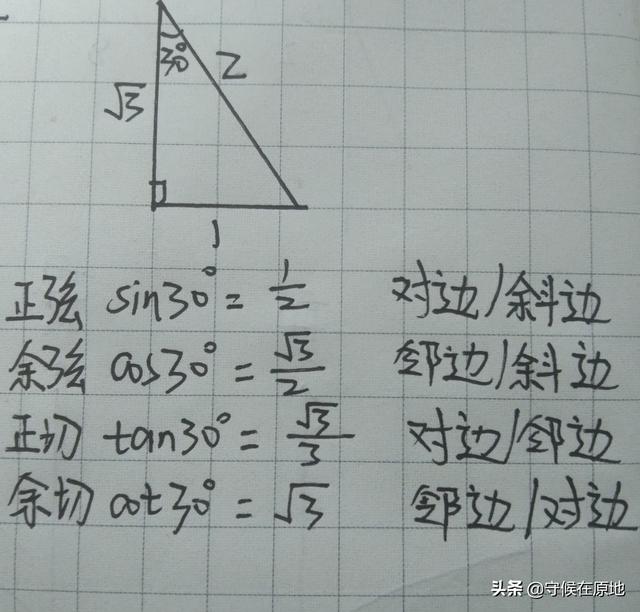 30°
2
√3
1
正弦 sin30°= 1/2 对边/斜边
余弦 cos30°= √3/2 邻边/斜边
正切 tan30°= √3/3 对边/邻边
余切 cot30°= √3 邻边/对边
头条 @守候在原地